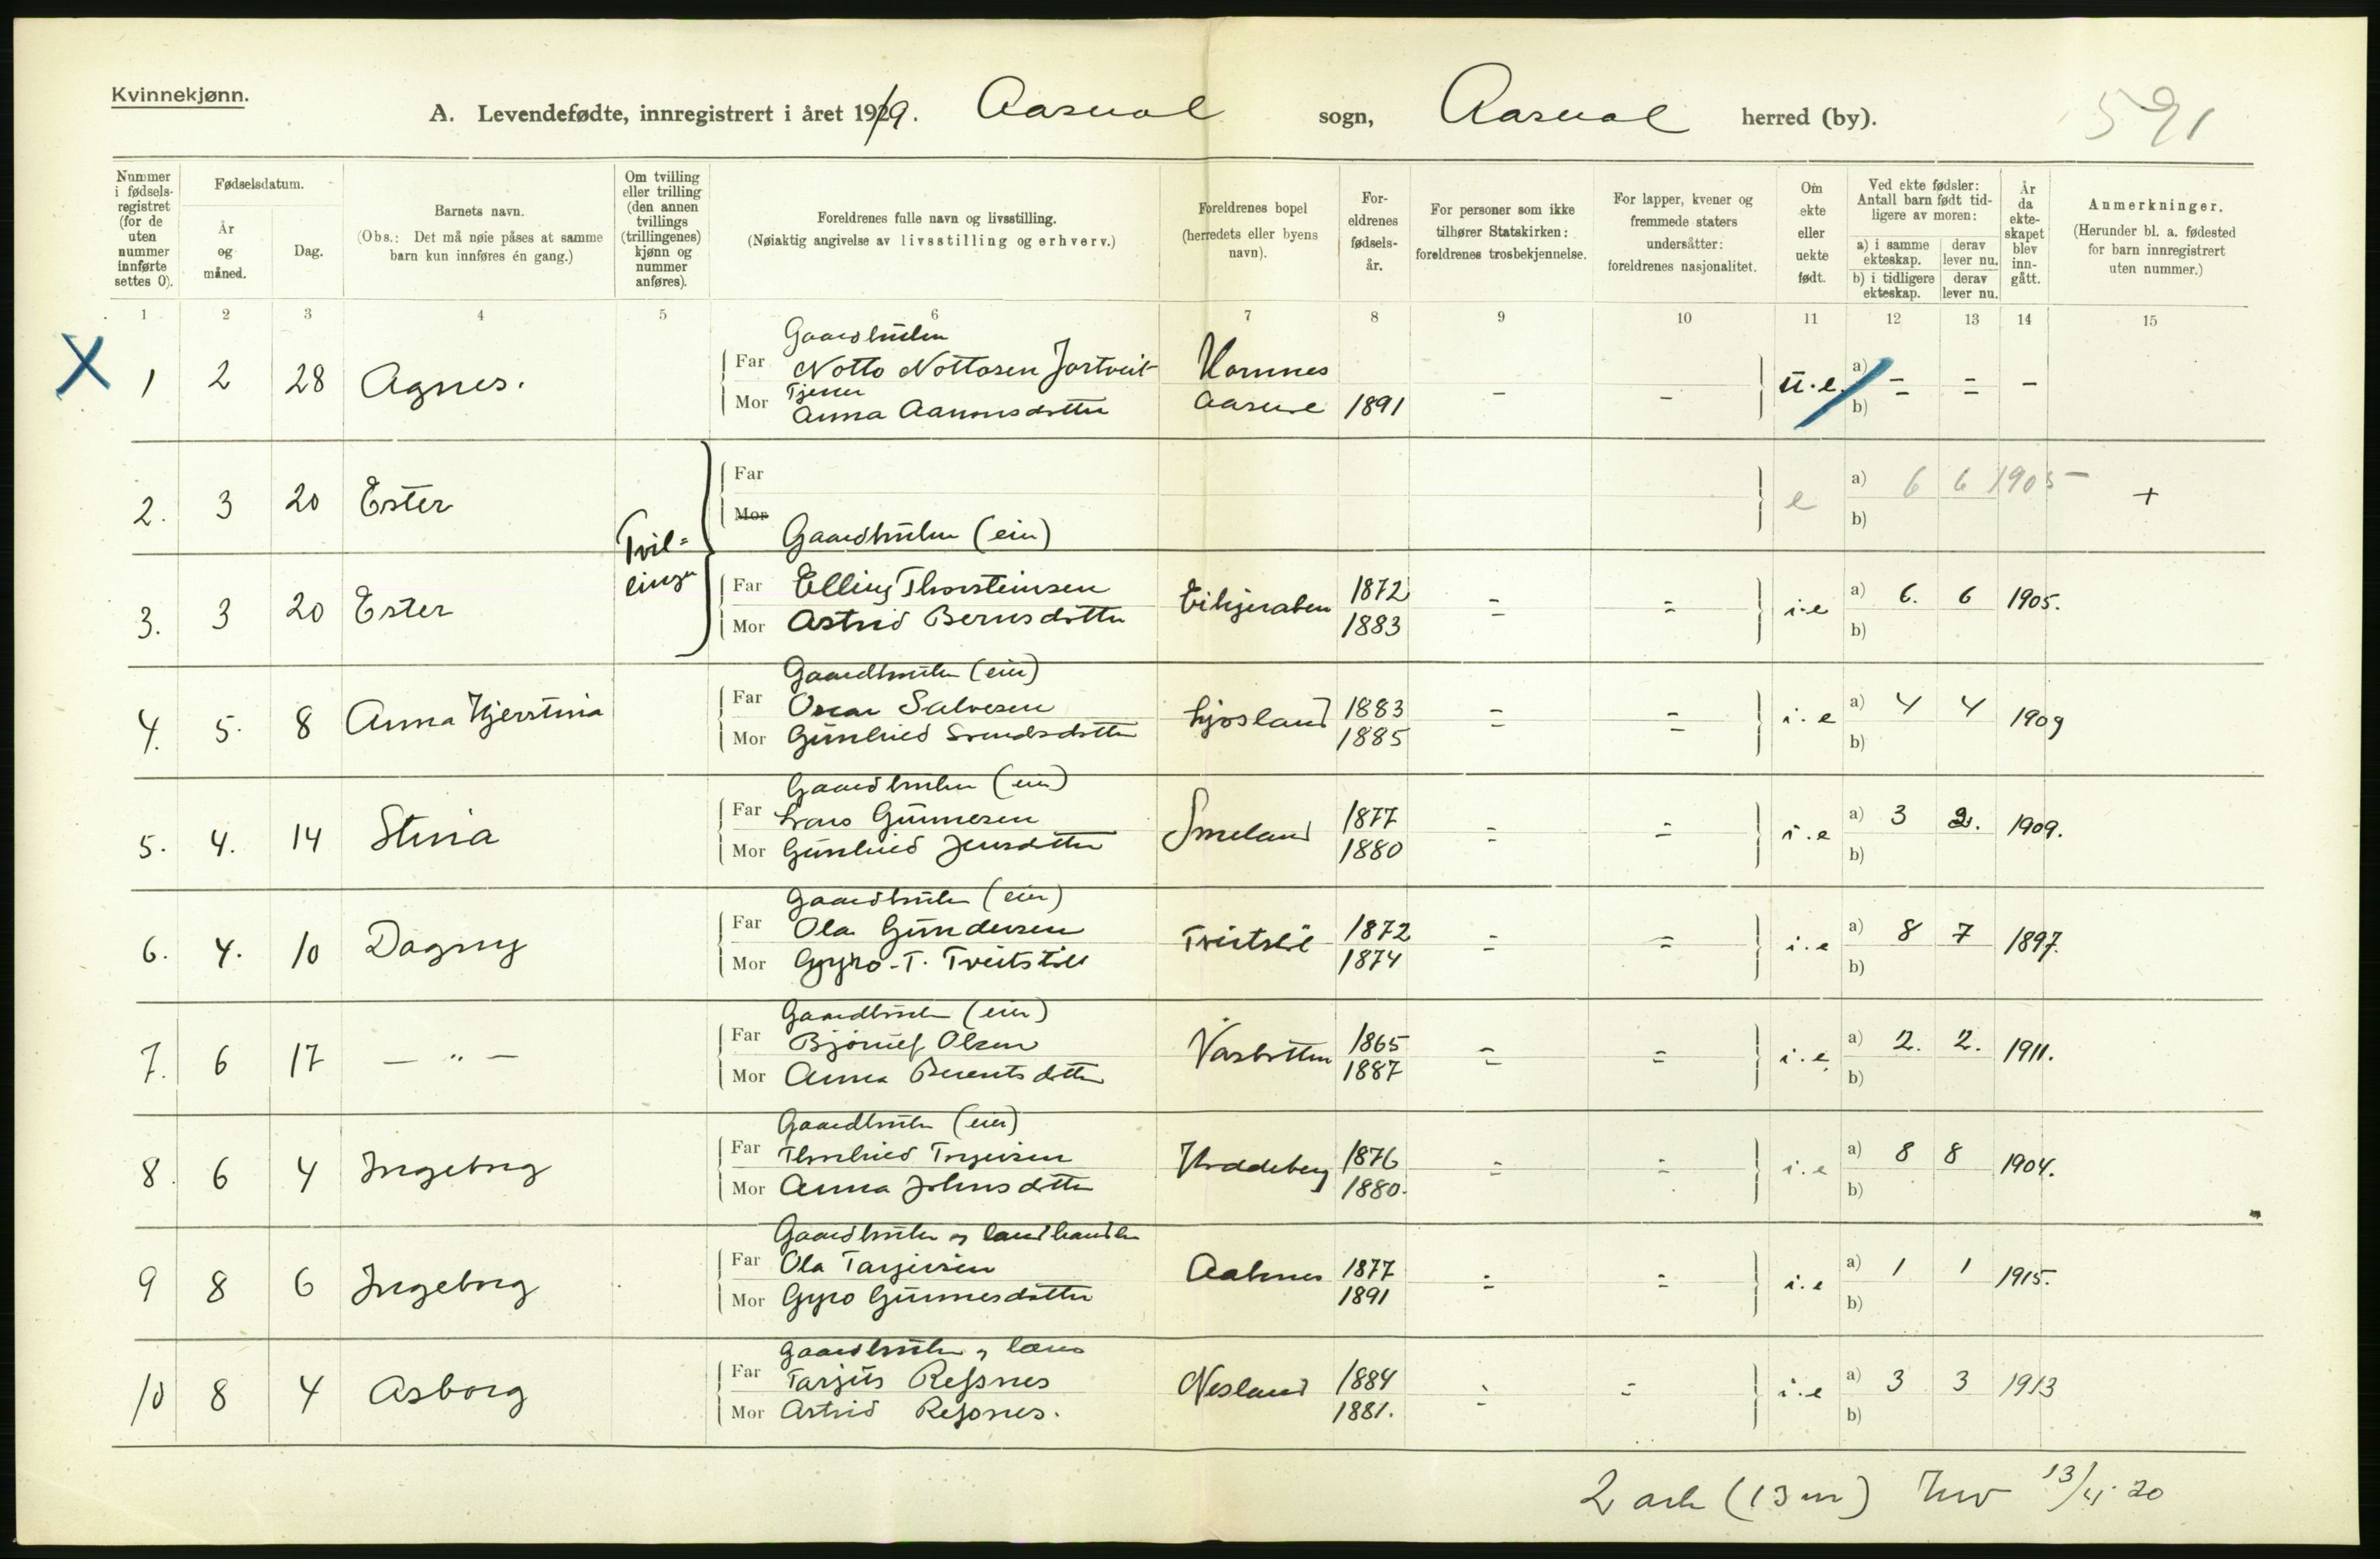 Kvinnekjønn.
A. Levendefødte, innregistrert i året 1919. Aaseral sogn, Aaseral herred (by). 591
Nummer i fødsels-registret (for de uten nummer innførte settes 0).
Fødselsdatum.
År og måned.
Dag.
Barnets navn.
(Obs.: Det må nøie påses at samme barn kun innføres én gang.)
Om tvilling eller trilling (den annen tvillings (trillingenes) kjønn og nummer anføres).
Foreldrenes fulle navn og livsstilling.
(Nøiaktig angivelse av livsstilling og erhverv.)
Foreldrenes bopel (herredets eller byens navn).
For-eldrenes fødsels-år.
For personer som ikke tilhører Statskirken: foreldrenes trosbekjennelse.
For lapper, kvener og fremmede staters undersåtter: foreldrenes nasjonalitet.
Om ekte eller uekte født.
Ved ekte fødsler: Antall barn født tid-ligere av moren:
a) i samme ekteskap. derav lever nu.
b) i tidligere ekteskap. derav lever nu.
År da ekte-skapet blev inn-gått.
Anmerkninger.
(Herunder bl. a. fødested for barn innregistrert uten nummer.)
1 2 3 4 5 6 7 8 9 10 11 12 13 14 15
Gaardbruker
X 1 2 28 Agnes. Far Notto Nottosen Jortveit Hornnes - - u.e. a) = = -
Tjener
Mor Anna Aanonsdotter 1891 b)
2. 3 20 Ester Far e a) 6 6 1905 - +
Mor b)
Tvil=
Gaardbruker (eier)
3. 3 20 Ester Far Elling Thorsteinsen 1872 = = i.e a) 6. 6 1905.
Mor Astrid Bernsdotter 1883 b)
Gaardbruker (eier)
4. 5. 8 Anna Kjerstina Far Oscar Salvesen Ljosland 1883 = = i.e a) 4 4 1909
Mor Gunhild 1885 b)
Gaardbruker (eier)
5. 4. 14 Stina Far Lars Gunnesen Smeland 1877 = = i.e a) 3 2. 1909.
Mor Gunhild Jensdotter 1880 b)
Gaardbruker (eier)
6. 4. 10 Dagny Far Ola Gundersen 1872 = = i.e a) 8 7 1897.
Mor Gyro T. 1874 b)
Gaardbruker (eier)
7. 6 17 — " — Far Bjørnulf Olsen 1865 = = i.e a) 2. 2. 1911.
Mor Anna Berentsdotter 1887 b)
Gaardbruker (eier)
8. 6 4 Ingeborg Far 1876 = = i.e a) 8 8 1904.
Mor Anna Johnsdotter 1880. b)
Gaardbruker og landhandler
9 8 6 Ingeborg Far Ola Tarjeisen 1877 = = i.e a) 1 1 1915.
Mor Gyro Gunnesdotter 1891 b)
Gaardbruker
10 8 4 Asborg Far Refsnes Nesland 1884 = = i.e a) 3 3 1913
Mor Astrid Refsnes. 1881. b)
2 ark (13 m) 13/4 20